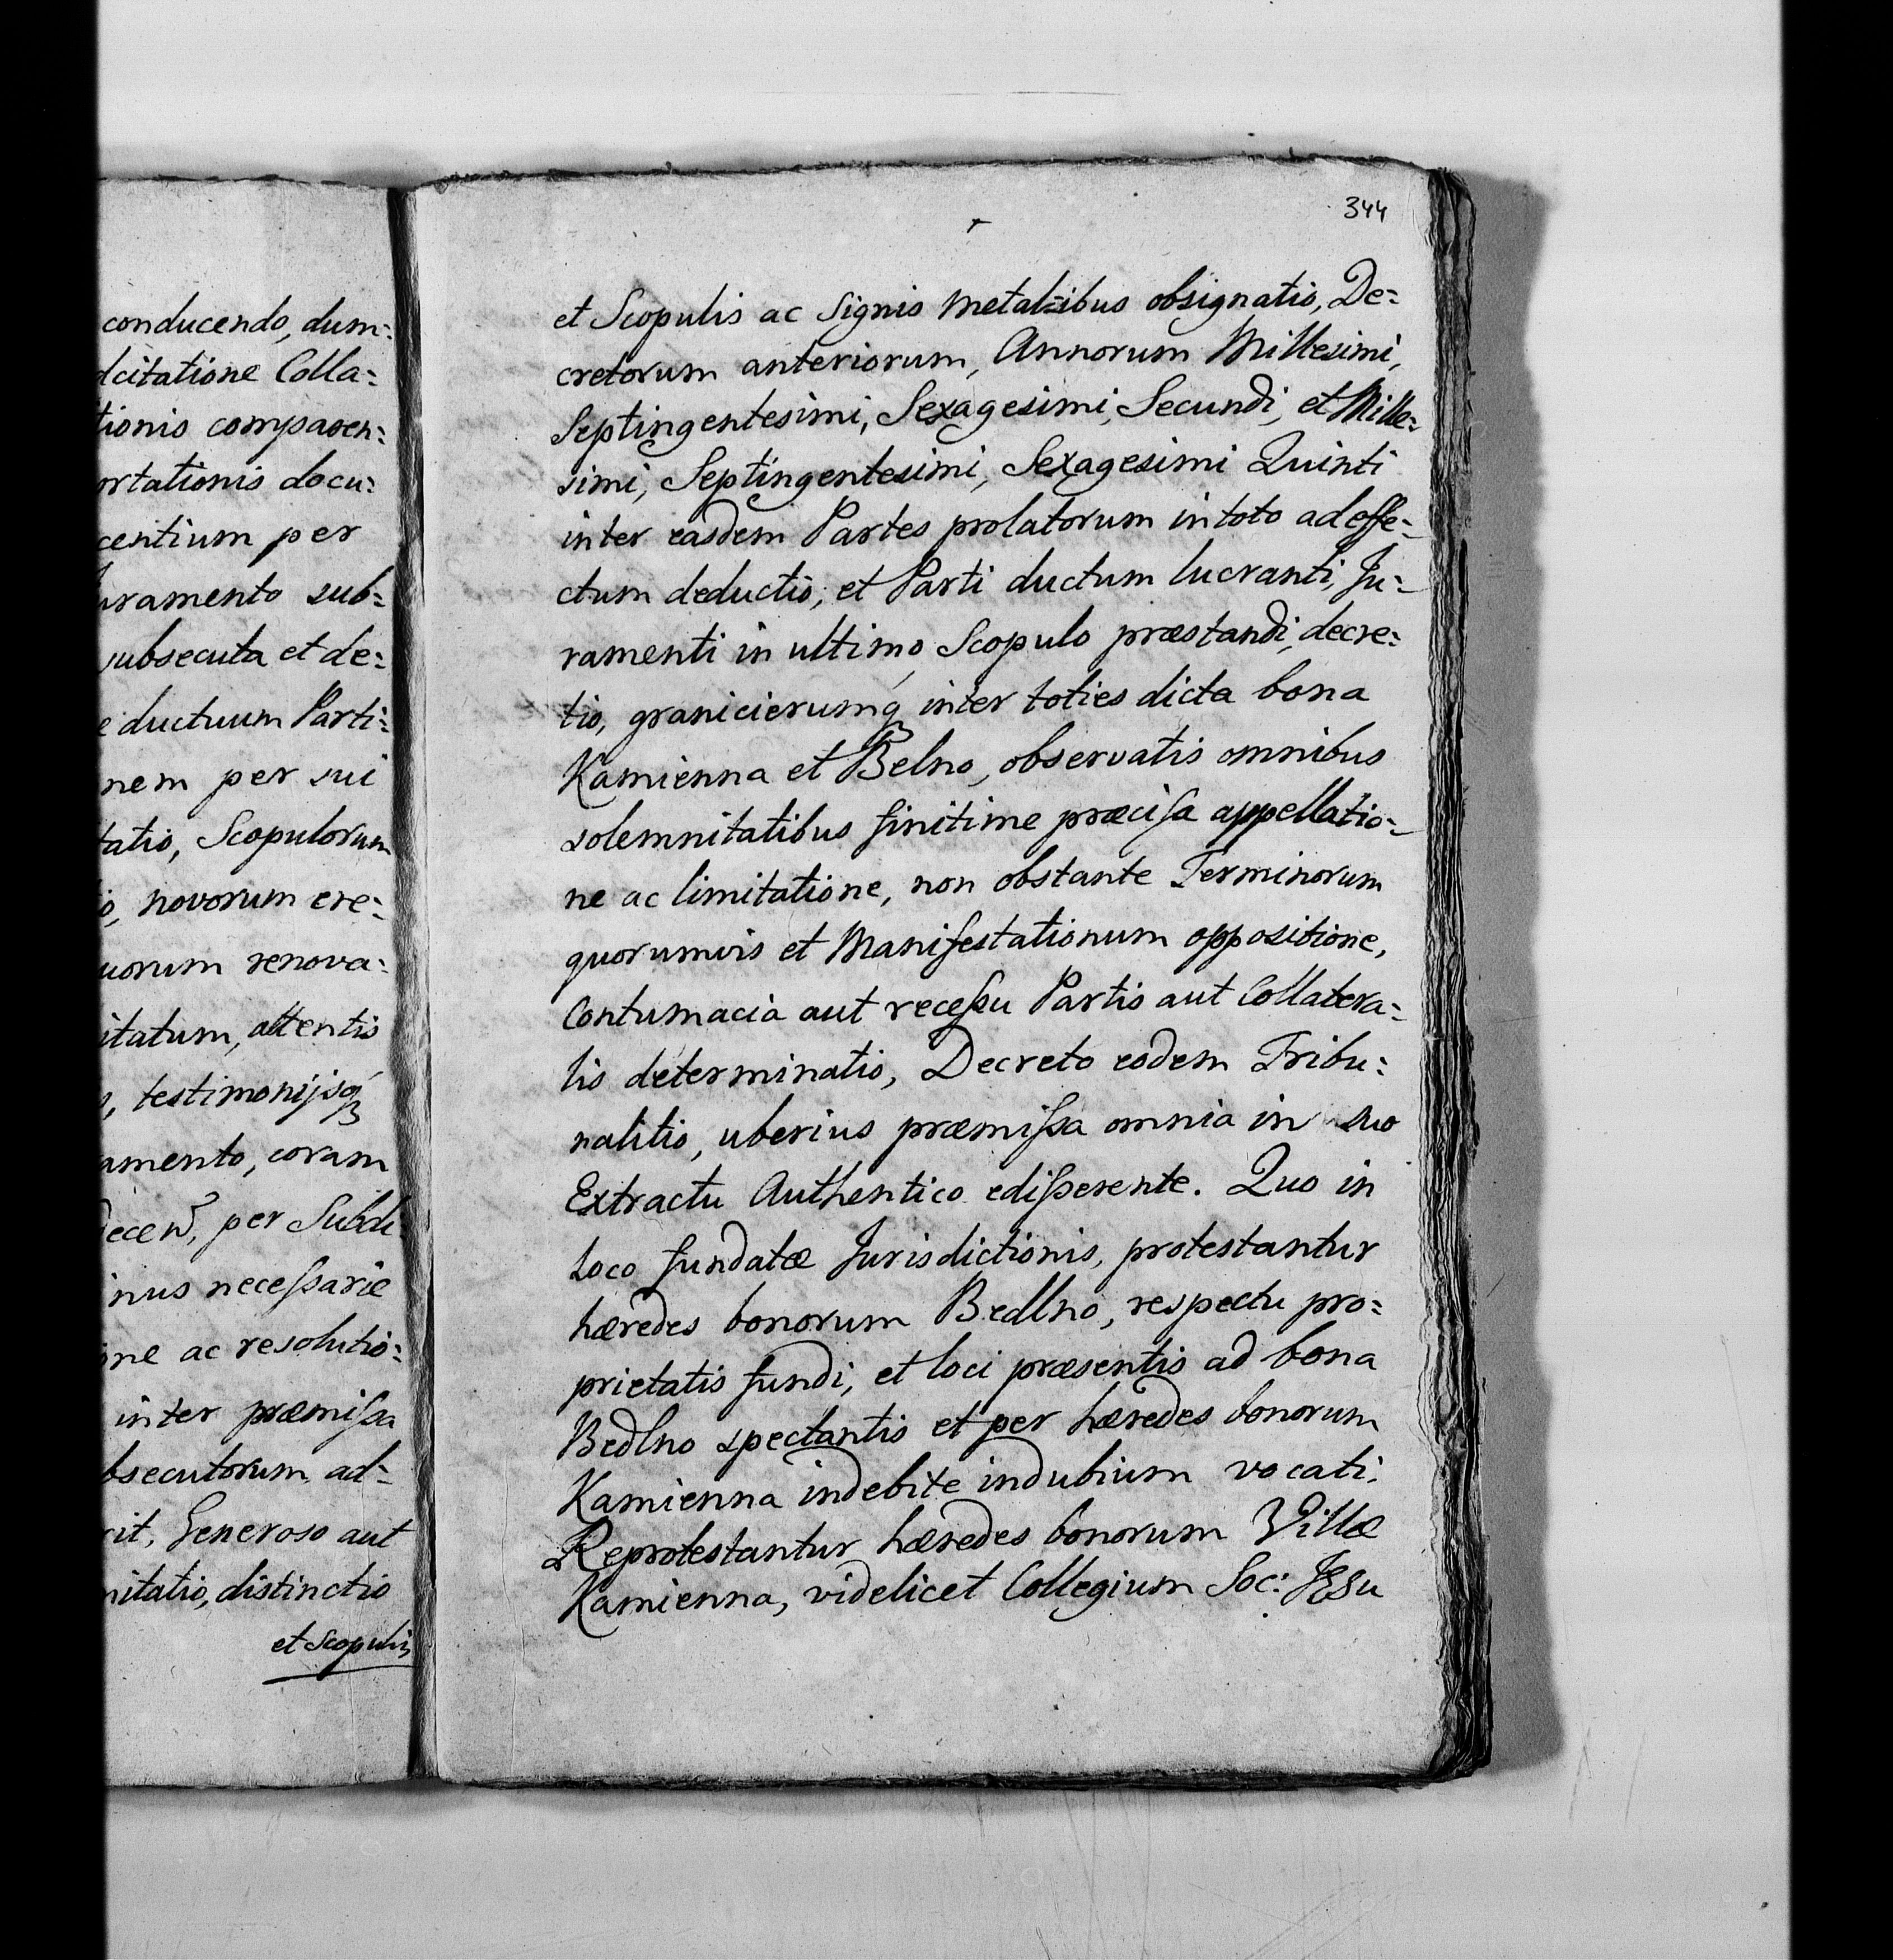 conducendo, dum-
dcitatione Colla-
tionis comparen-
ortationis docu-
centium per
uramento sub-
subsecuta et de-
e ductuum Parti-
nem per sui
tatis, Scopulorum
novorum ere-
uorum renova-
itatum, attentis
testimonijsq́
amento, coram
per Subde
inus necessarie
one ac resolutio-
inter præmissa
bsecutorum ad-
rit, Generoso aut
nitatis, distinctis
et Scopulis
344
et Scopulis ac Signis Metalibus obsignatis, De-
cretorum anteriorum, Annorum Millesimi,
Septingentesimi, Sexagesimi, Secundi, et Mille-
simi, Septingentesimi, Sexagesimi Quinti
inter easdem Partes prolatorum in toto ad effe-
ctum deductis, et Parti ductum lucranti, Ju-
ramenti in ultimo Scopulo præstandi, decre-
tis, granicierumq́ inter toties dicta bona
Kamienna et Belno, observatis omnibus
solemnitatibus finitime præcisa appellatio-
ne ac limitatione, non obstante Terminorum
quorumvis et Manifestationum oppositione,
Contumacia aut recessu Partis aut Collatera-
lis determinatis, Decreto eodem Tribu-
nalitis, uberius præmissa omnia in suo
Extractu Authentico edisserente. Quo in
Loco fundatæ Jurisdictionis, protestantur
hæredes bonorum Bedlno, respectu pro-
prietatis fundi, et loci præsentis ad bona
Bedlno spectantis et per hæredes bonorum
Kamienna indebite indubium vocati.
Reprotestantur hæredes bonorum Villæ
Kamienna, videlicet Collegium Soc: JEsu